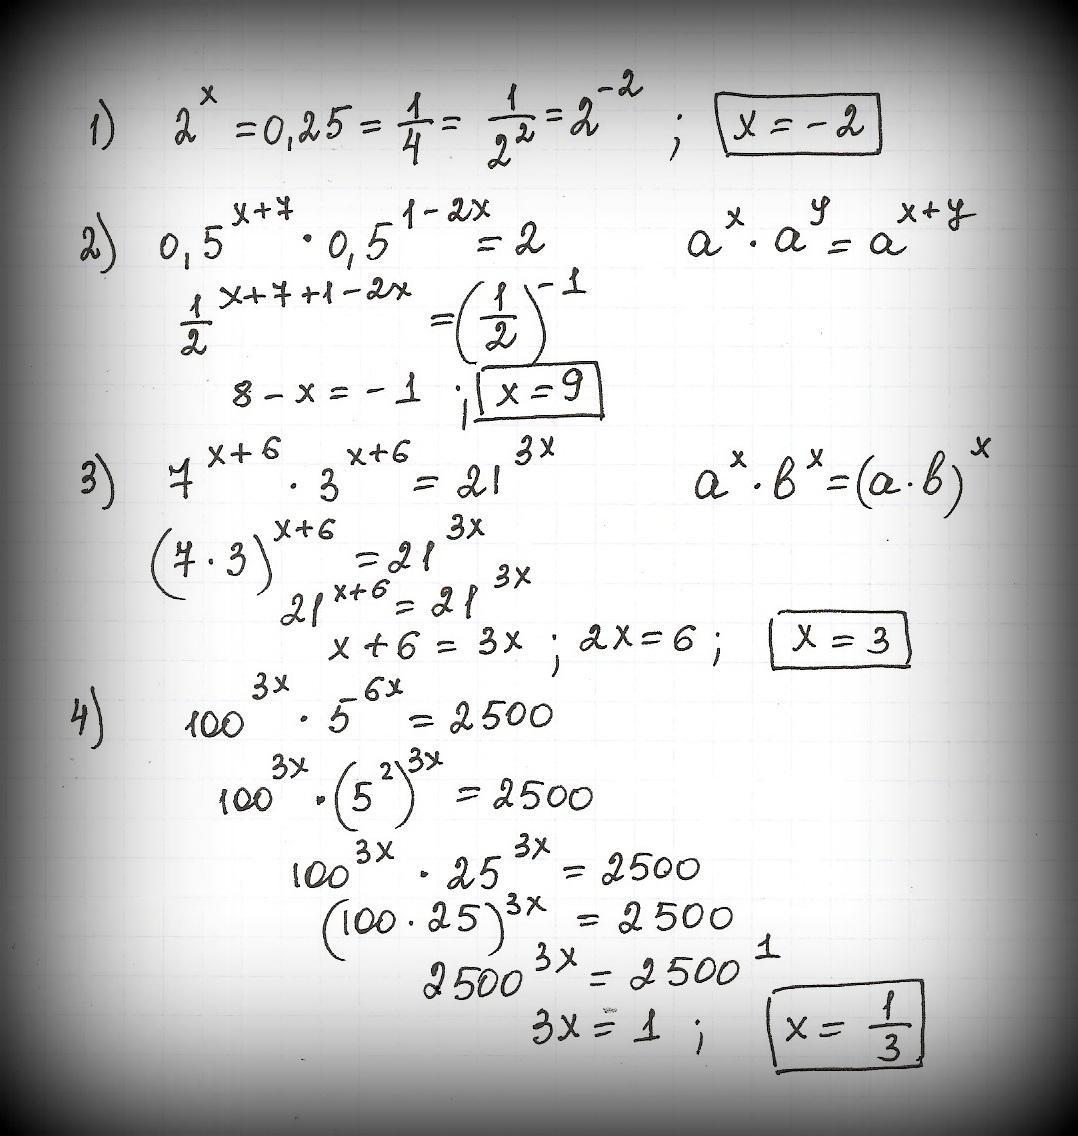 1) 2^x = 0,25 = 1/4 = 1/2^2 = 2^-2 ; x = -2
2) 0,5^x+7 · 0,5^1-2x = 2 a^x · a^y = a^x+y
1/2^x+7+1-2x = (1/2)^-1
8 - x = -1 ; x = 9
3) 7^x+6 · 3^x+6 = 21^3x a^x · b^x = (a · b)^x
(7 · 3)^x+6 = 21^3x
21^x+6 = 21^3x
x + 6 = 3x ; 2x = 6 ; x = 3
4) 100^3x · 5^6x = 2500
100^3x · (5^2)^3x = 2500
100^3x · 25^3x = 2500
(100 · 25)^3x = 2500
2500^3x = 2500^1
3x = 1 ; x = 1/3